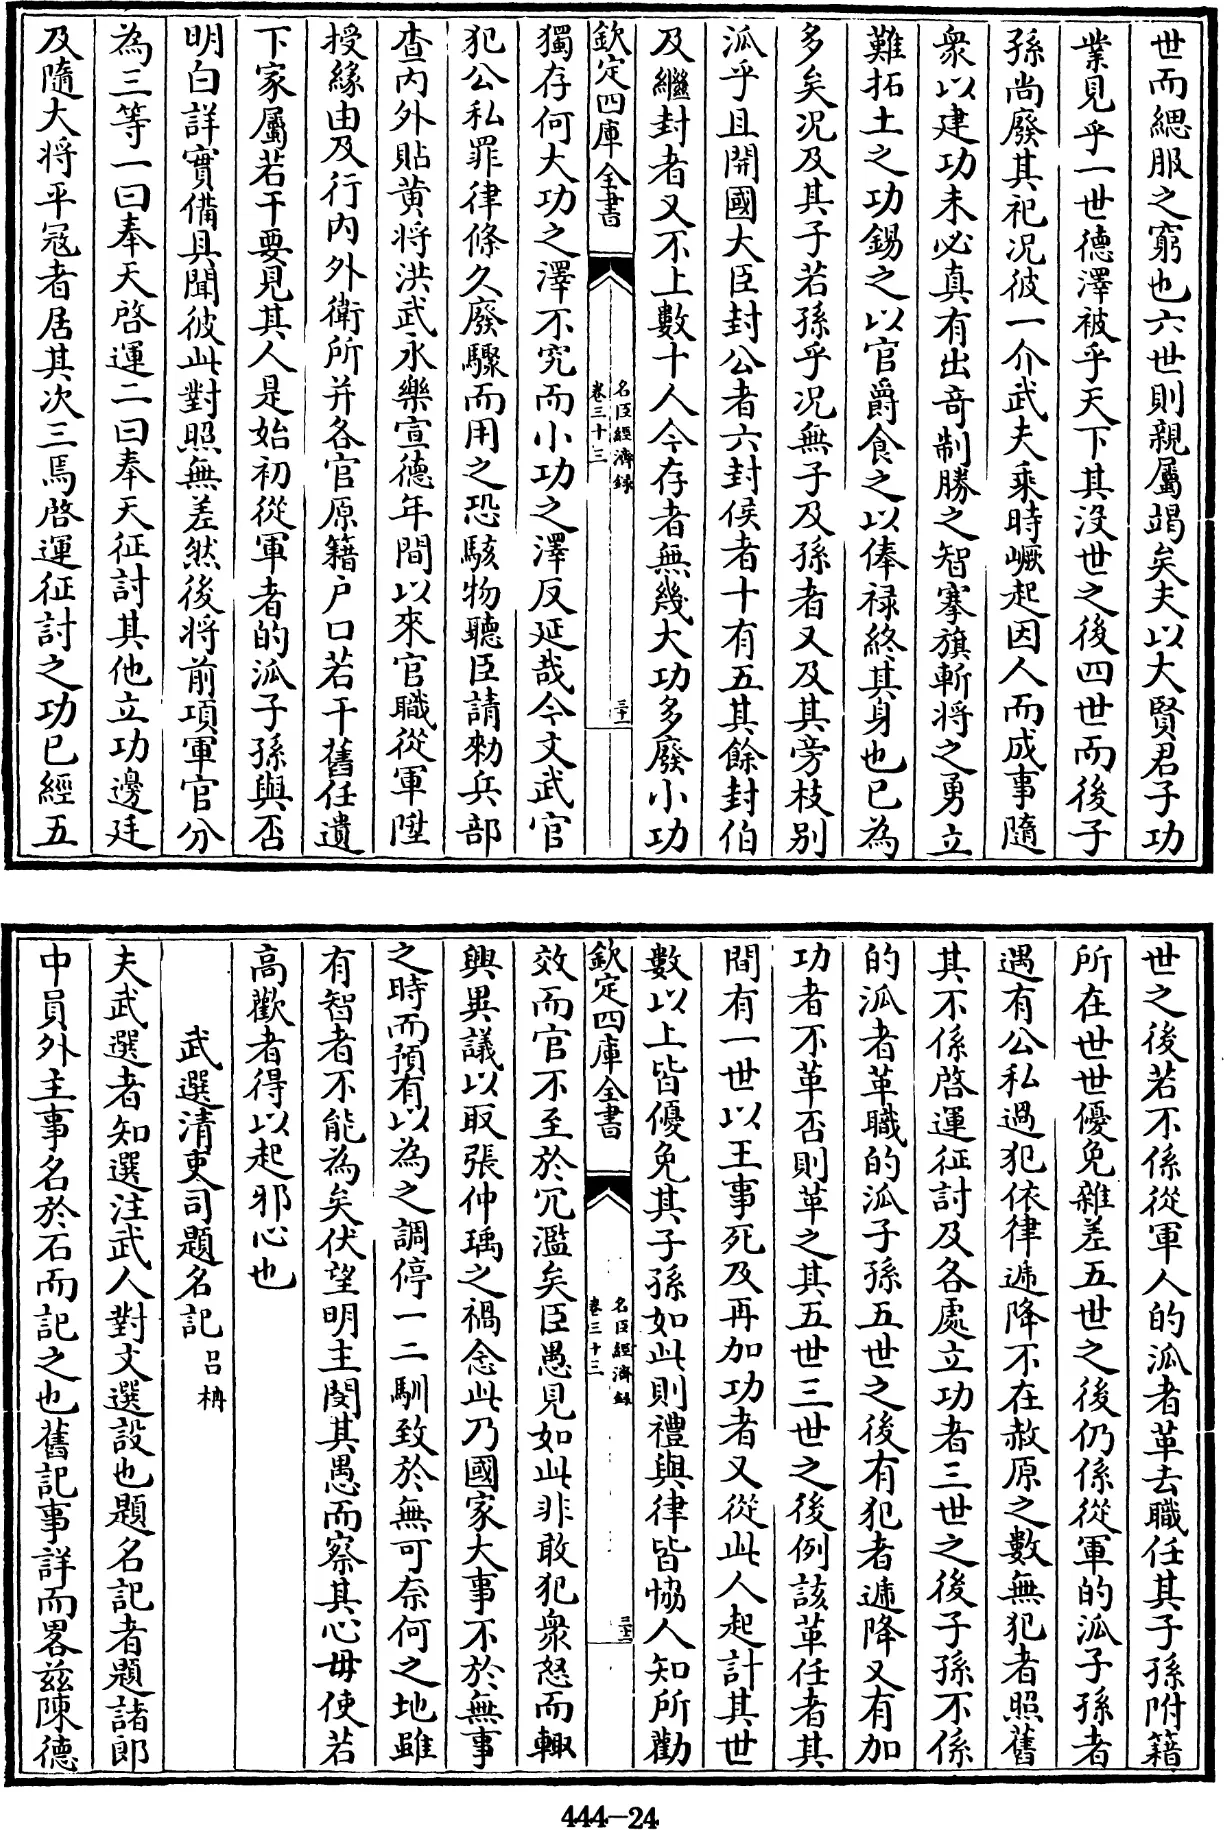 世而緦服之窮也六世則親屬竭矣夫以大賢君子功
業見乎一世德澤被乎天下其沒世之後四世而後子
孫尚廢其祀况彼一介武夫乘時崛起因人而成事隨
衆以建功未必真有出竒制勝之智搴旗斬将之勇立
難拓土之功錫之以官爵食之以俸禄終其身也已為
多矣况及其子若孫乎况無子及孫者又及其旁枝别
泒乎且開國大臣封公者六封侯者十有五其餘封伯
及繼封者又不上數十人今存者無幾大功多廢小功
欽定四庫全書
名臣經濟録
卷三十三
三十一
獨存何大功之澤不究而小功之澤反延哉今文武官
犯公私罪律條久廢驟而用之恐駭物聽臣請勑兵部
查內外貼黄将洪武永樂宣德年間以來官職從軍陞
授緣由及行内外衛所并各官原籍户口若干舊任遺
下家屬若干要見其人是始初從軍者的泒子孫與否
明白詳實備具聞彼此對照無差然後将前項軍官分
為三等一曰奉天啓運二曰奉天征討其他立功邊廷
及隨大将平冦者居其次三焉啓運征討之功已經五
世之後若不係從軍人的泒者革去職任其子孫附籍
所在世世優免雜差五世之後仍係從軍的泒子孫者
遇有公私過犯依律遞降不在赦原之數無犯者照舊
其不係啓運征討及各處立功者三世之後子孫不係
的泒者革職的泒子孫五世之後有犯者遞降又有加
功者不革否則革之其五世三世之後例該革任者其
間有一世以王事死及再加功者又從此人起計其世
數以上皆優免其子孫如此則禮與律皆恊人知所勸
欽定四庫全書
名臣經濟録
卷三十三
三十二
效而官不至於冗濫矣臣愚見如此非敢犯衆怒而輙
興異議以取張仲瑀之禍念此乃國家大事不於無事
之時而預有以為之調停一二馴致於無可奈何之地雖
有智者不能為矣伏望明主閔其愚而察其心毋使若
高歡者得以起邪心也
武選清吏司題名記 吕柟
夫武選者知選注武人對文選設也題名記者題諸郎
中員外主事名於石而記之也舊記事詳而畧兹陳德
444-24